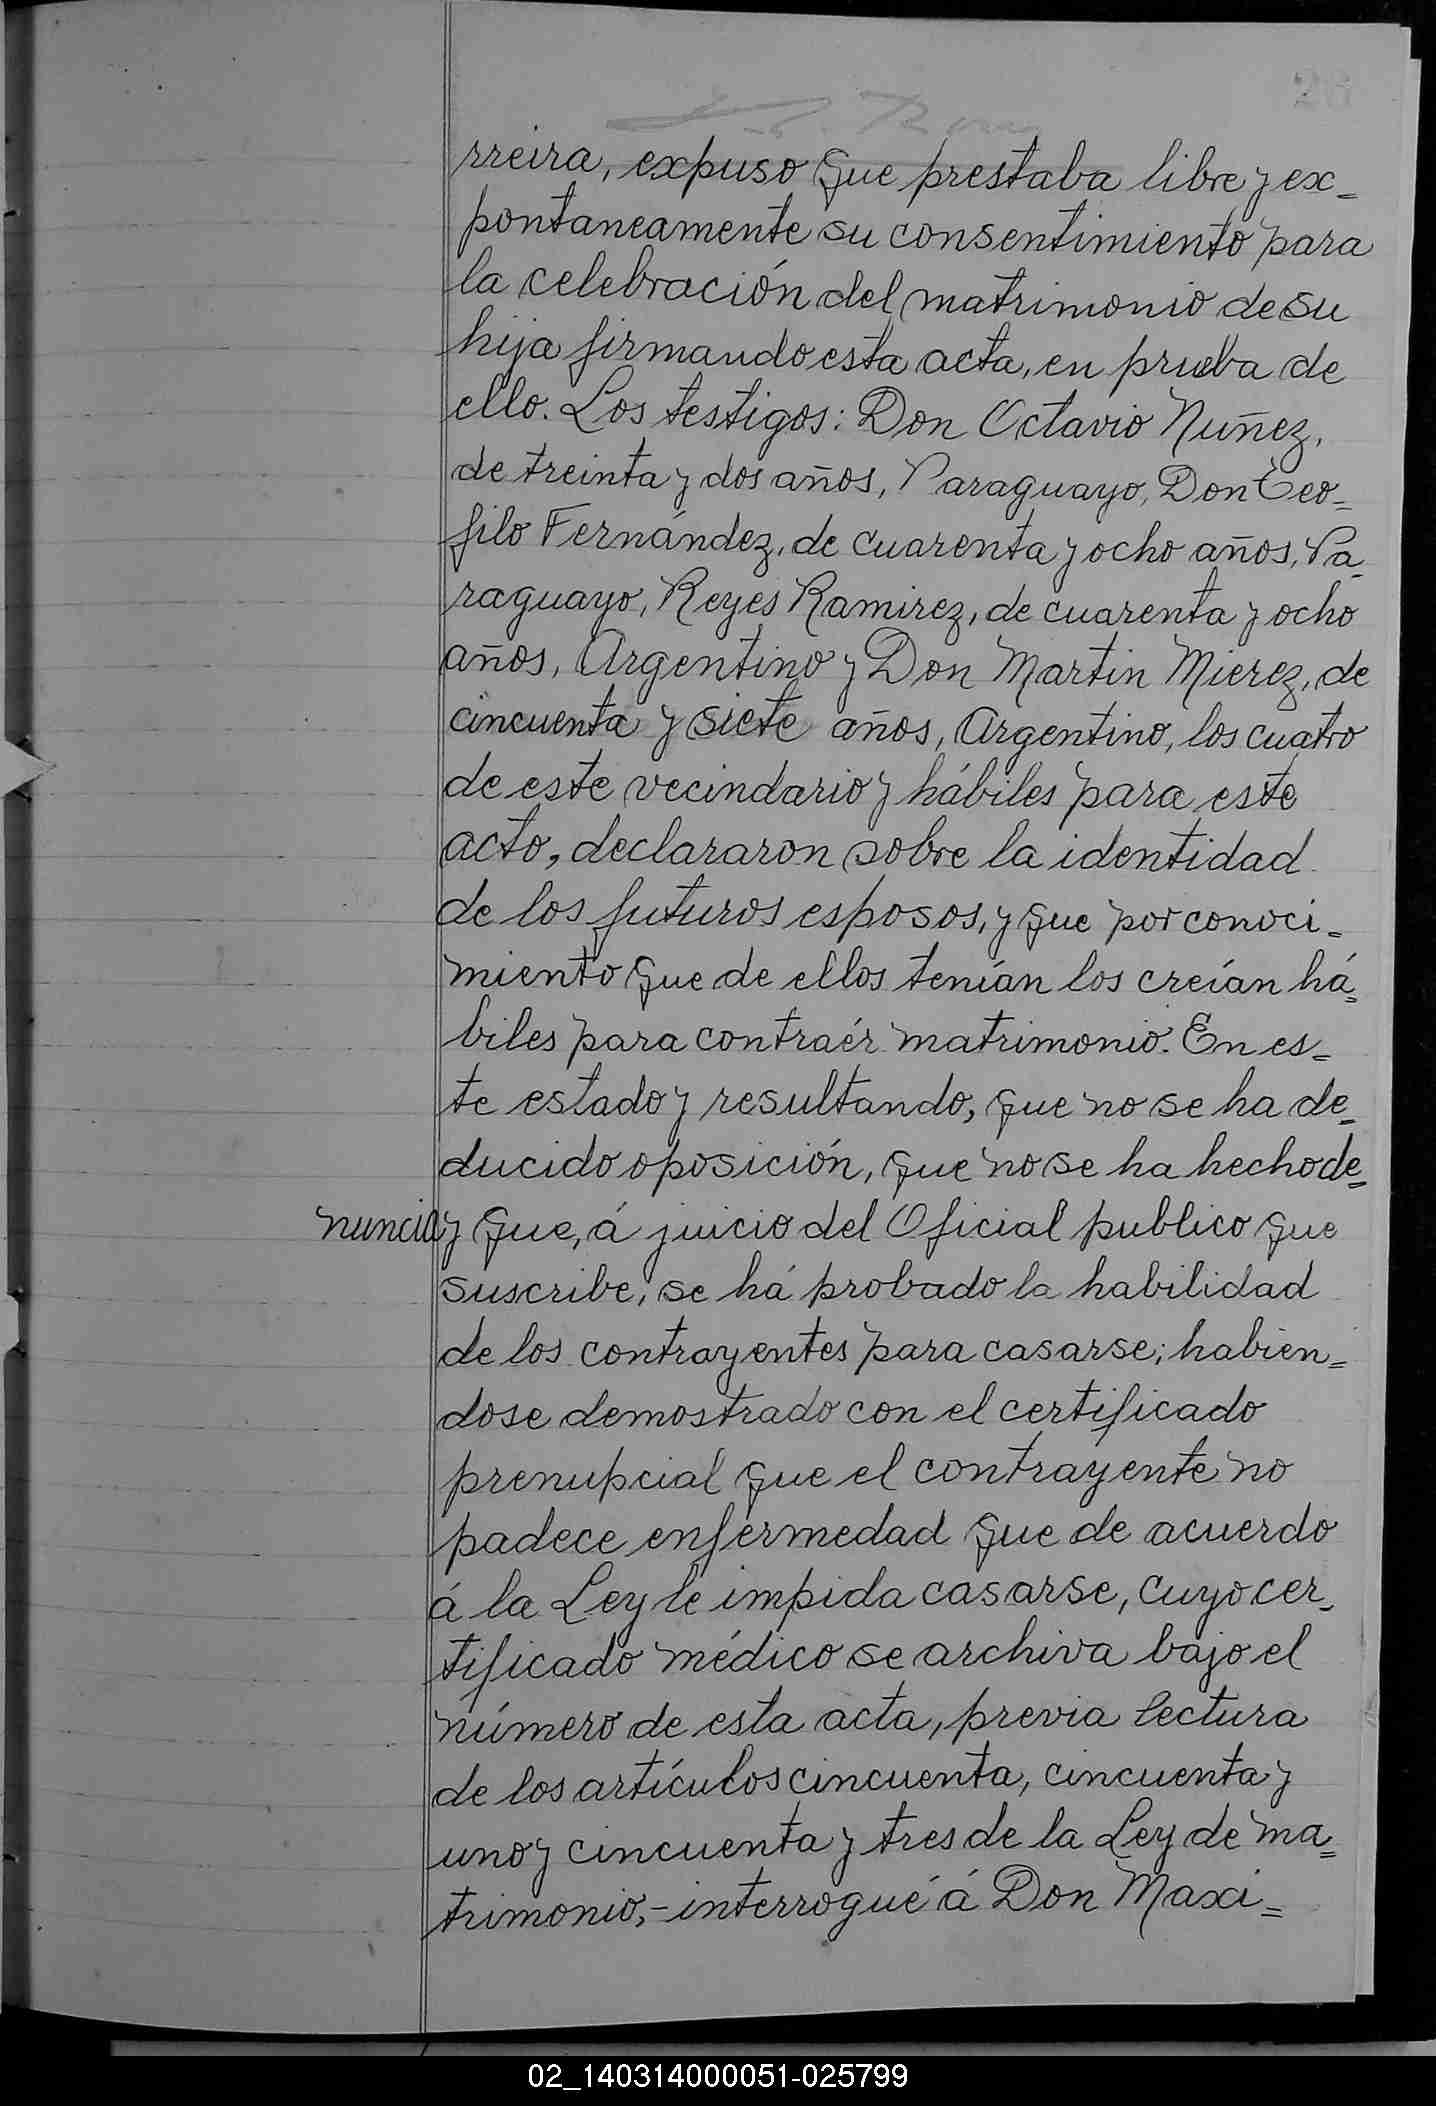 26
rreira, expuso que prestaba libre y ex=
pontaneamente su consentimiento para
la celebración del matrimonio de su
hija firmando esta acta, en prueba de
ello. Los testigos: Don Octavio Nuñez,
de treinta y dos años, Paraguayo, Don Teo=
filo Fernández, de cuarenta y ocho años, Pa=
raguayo, Reyes Ramirez, de cuarenta y ocho
años, Argentino y Don Martin Mierez, de
cincuenta y siete años, Argentino, los cuatro
de este vecindario y hábiles para este
acto, declararon sobre la identidad
de los futuros esposos, y que por conoci=
miento que de ellos tenían los creían há=
biles para contraér matrimonio. En es=
te estado y resultando, que no se ha de=
ducido oposición, que no se ha hecho de=
nuncia y que, á juicio del Oficial publico que
suscribe, se há probado la habilidad
de los contrayentes para casarse; habien=
dose demostrado con el certificado
prenupcial que el contrayente no
padece enfermedad que de acuerdo
á la Ley le impida casarse, cuyo cer=
tificado médico se archiva bajo el
número de esta acta, previa lectura
de los artículos cincuenta, cincuenta y
uno y cincuenta y tres de la Ley de ma=
trimonio,- interrogué á Don Maxi=
02_140314000051-025799